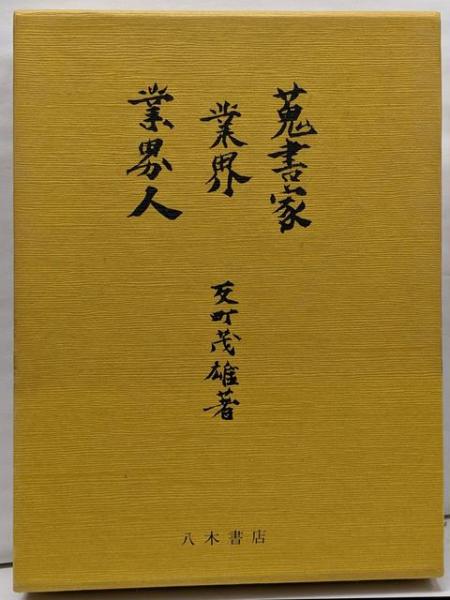 蒐書家
業界
業界人
反町茂雄著
八木書店